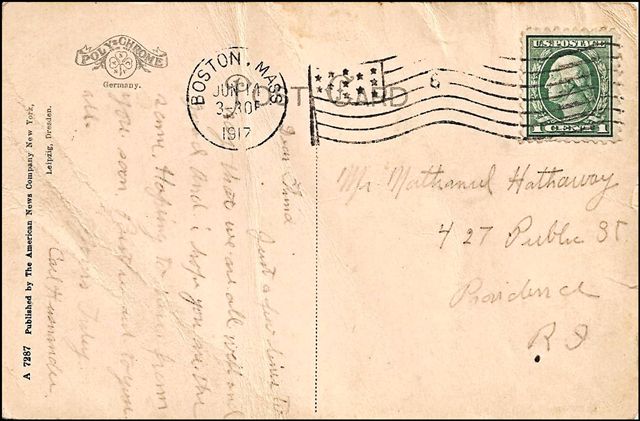 POLY-CHROME
Germany.
A 7287 Published by The American News Company New York,
Leipzig, Dresden.
BOSTON, MASS
JUN 14
3-30P
1917
POST CARD
U.S. POSTAGE
1 CENT 1
Dear Friend
Just a few lines to
that we are all well and
and i hope you are the
same. Hoping to hear from
you soon Best regard to you
all.
Yours Truly
Carl
Mr Nathaniel Hathaway
427 Public St
Providence
R I